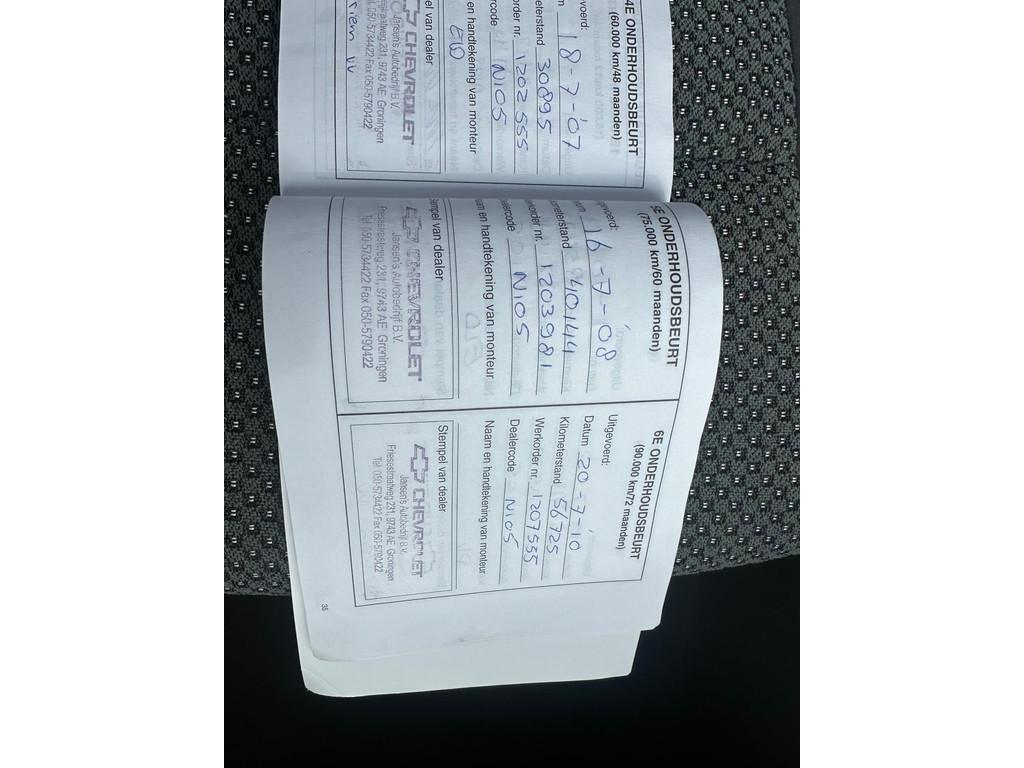 4E ONDERHOUDSBEURT
(60.000 km/48 maanden)
18-7-'07
30895
order nr. 1202555
code N105
en handtekening van monteur
van dealer
CHEVROLET
Jansen's Autobedrijf B.V.
231, 9743 AE Groningen
050-5734422 Fax 050-5790422
5E ONDERHOUDSBEURT
(75.000 km/60 maanden)
16-7-08
40144
1203981
N105
en handtekening van monteur
Stempel van dealer
CHEVROLET
Jansen's Autobedrijf B.V.
Friesestraatweg 231, 9743 AE Groningen
Tel. 050-5734422 Fax 050-5790422
6E ONDERHOUDSBEURT
(90.000 km/72 maanden)
Uitgevoerd:
Datum 20-7-'10
Kilometerstand 56725
Werkorder nr. 1207555
Dealercode N105
Naam en handtekening van monteur
Stempel van dealer
CHEVROLET
Jansen's Autobedrijf B.V.
Friesestraatweg 231, 9743 AE Groningen
Tel. 050-5734422 Fax 050-5790422
35